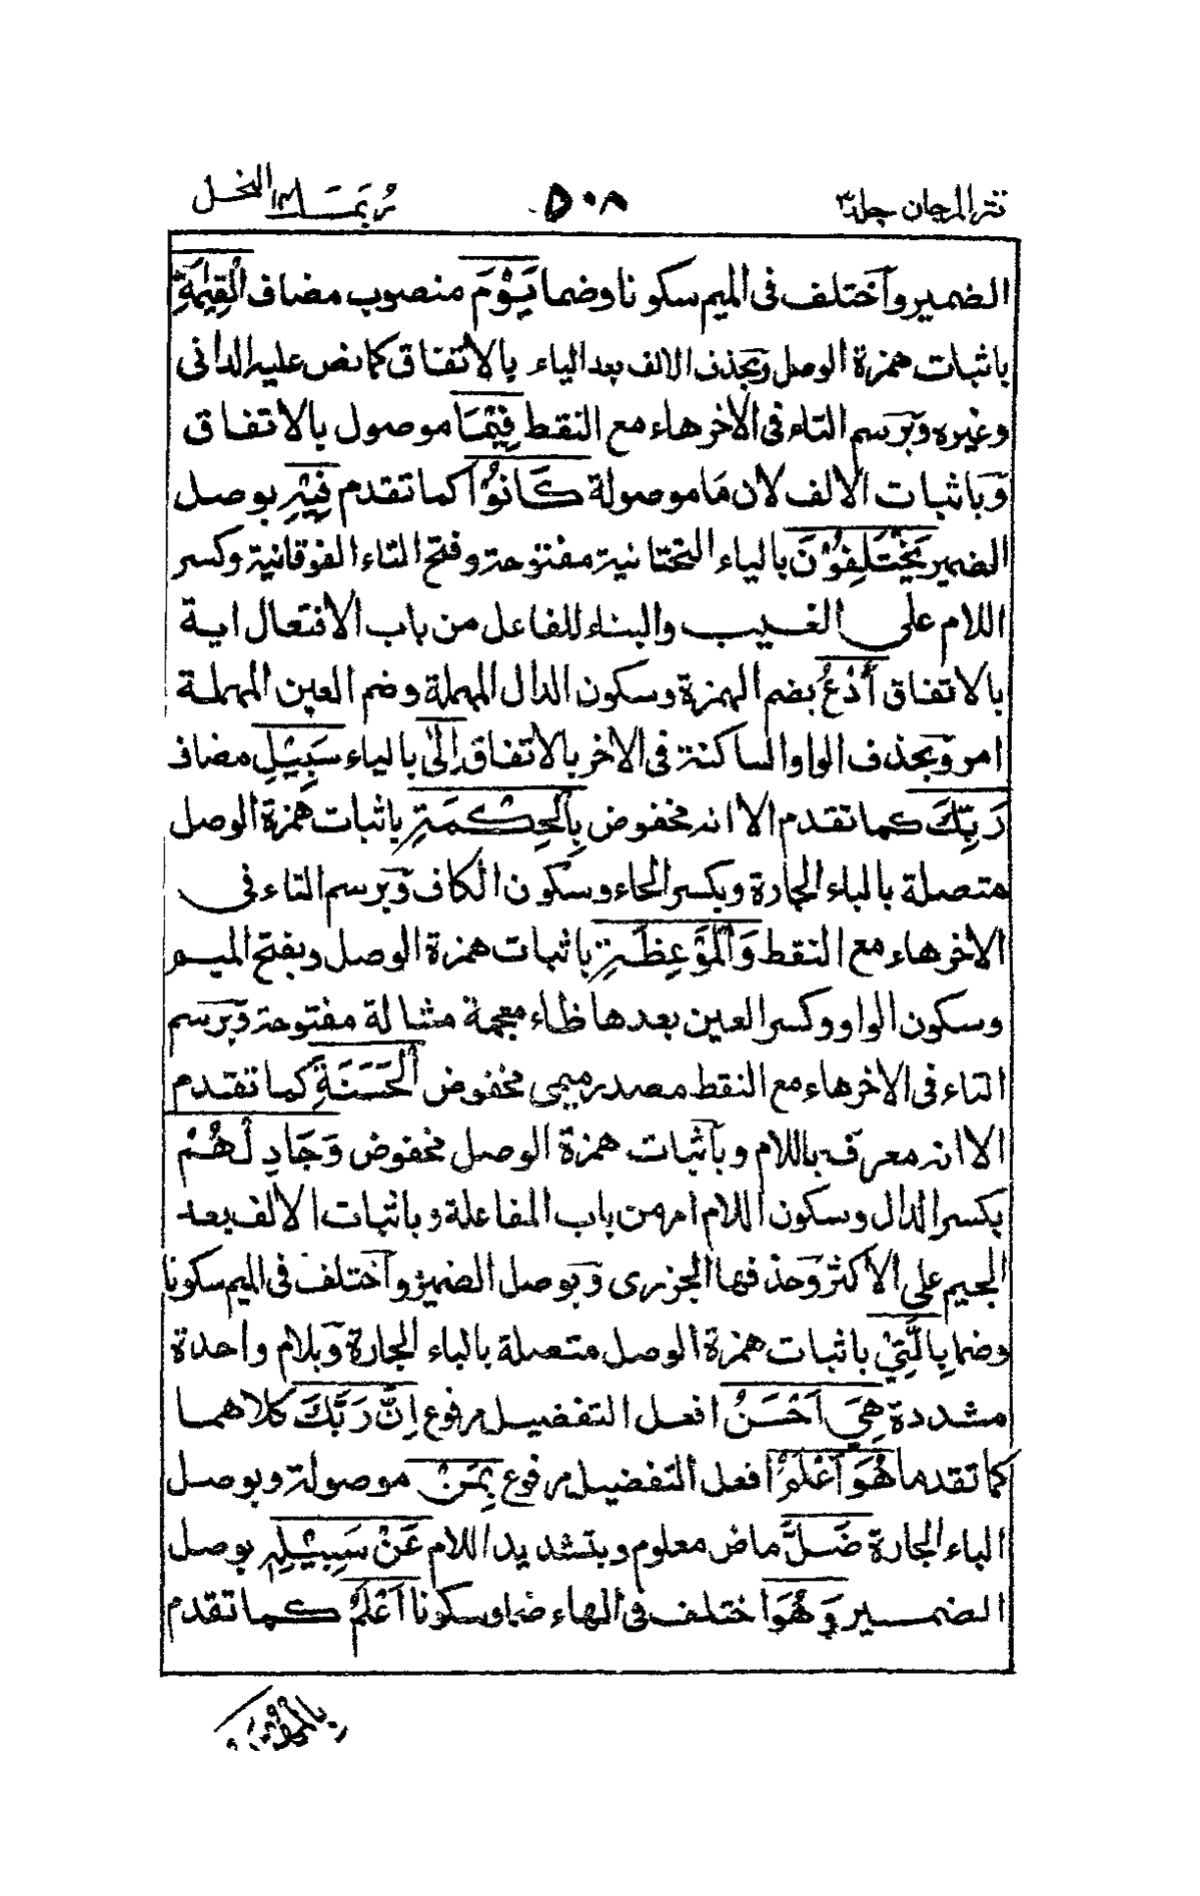 نثر المرجان جلد ٣ ٥٠٨ ربما ١٤ النحل
الضمير وآختلف فى الميم سكونا وضما يَوْمَ منصوب مضاف الْقِيٰمَةِ
باثبات همزة الوصل وبحذف الالف بعد الياء بالاتفاق كما نص عليه الدانى
وغيره وبرسم التاء فى الاخر هاء مع النقط فِيْمَا موصول بالاتفاق
وباثبات الالف لان مَا موصولة كَانُوْا كما تقدم فِيْهِ بوصل
الضمير يَخْتَلِفُوْنَ بالياء التحتانية مفتوحة وفتح التاء الفوقانية وكسر
اللام على الغيب والبناء للفاعل من باب الافتعال اية
بالاتفاق اُدْعُ بضم الهمزة وسكون الدال المهملة وضم العين المهملة
امر وبحذف الواو الساكنة فى الاخر بالاتفاق اِلٰى بالياء سَبِيْلِ مضاف
رَبِّكَ كما تقدم الا انه مخفوض بِالْحِكْمَةِ باثبات همزة الوصل
متصلة بالباء الجارة وبكسر الحاء وسكون الكاف وبرسم التاء فى
الاخر هاء مع النقط وَالْمَوْعِظَةِ باثبات همزة الوصل وبفتح الميم
وسكون الواو وكسر العين بعدها ظاء معجمة مشالة مفتوحة وبرسم
التاء فى الاخر هاء مع النقط مصدر ميمى مخفوض الْحَسَنَةِ كما تقدم
الا انه معرف باللام وبآثبات همزة الوصل مخفوض وَجَادِلْهُمْ
بكسر الدال وسكون اللام امر من باب المفاعلة وباثبات الالف بعد
الجيم على الاكثر وحذفها الجزرى وبوصل الضمير وآختلف فى الميم سكونا
وضما بِالَّتِيْ باثبات همزة الوصل متصلة بالباء الجارة وبلام واحدة
مشددة هِيَ اَحْسَنُ افعل التفضيل مرفوع اِنَّ رَبَّكَ كلاهما
كما تقدما هُوَ اَعْلَمُ افعل التفضيل مرفوع بِمَنْ موصولة وبوصل
الباء الجارة ضَلَّ ماض معلوم وبتشديد اللام عَنْ سَبِيْلِهٖ بوصل
الضمير وَهُوَ اختلف فى الهاء ضما وسكونا اَعْلَمُ كما تقدم